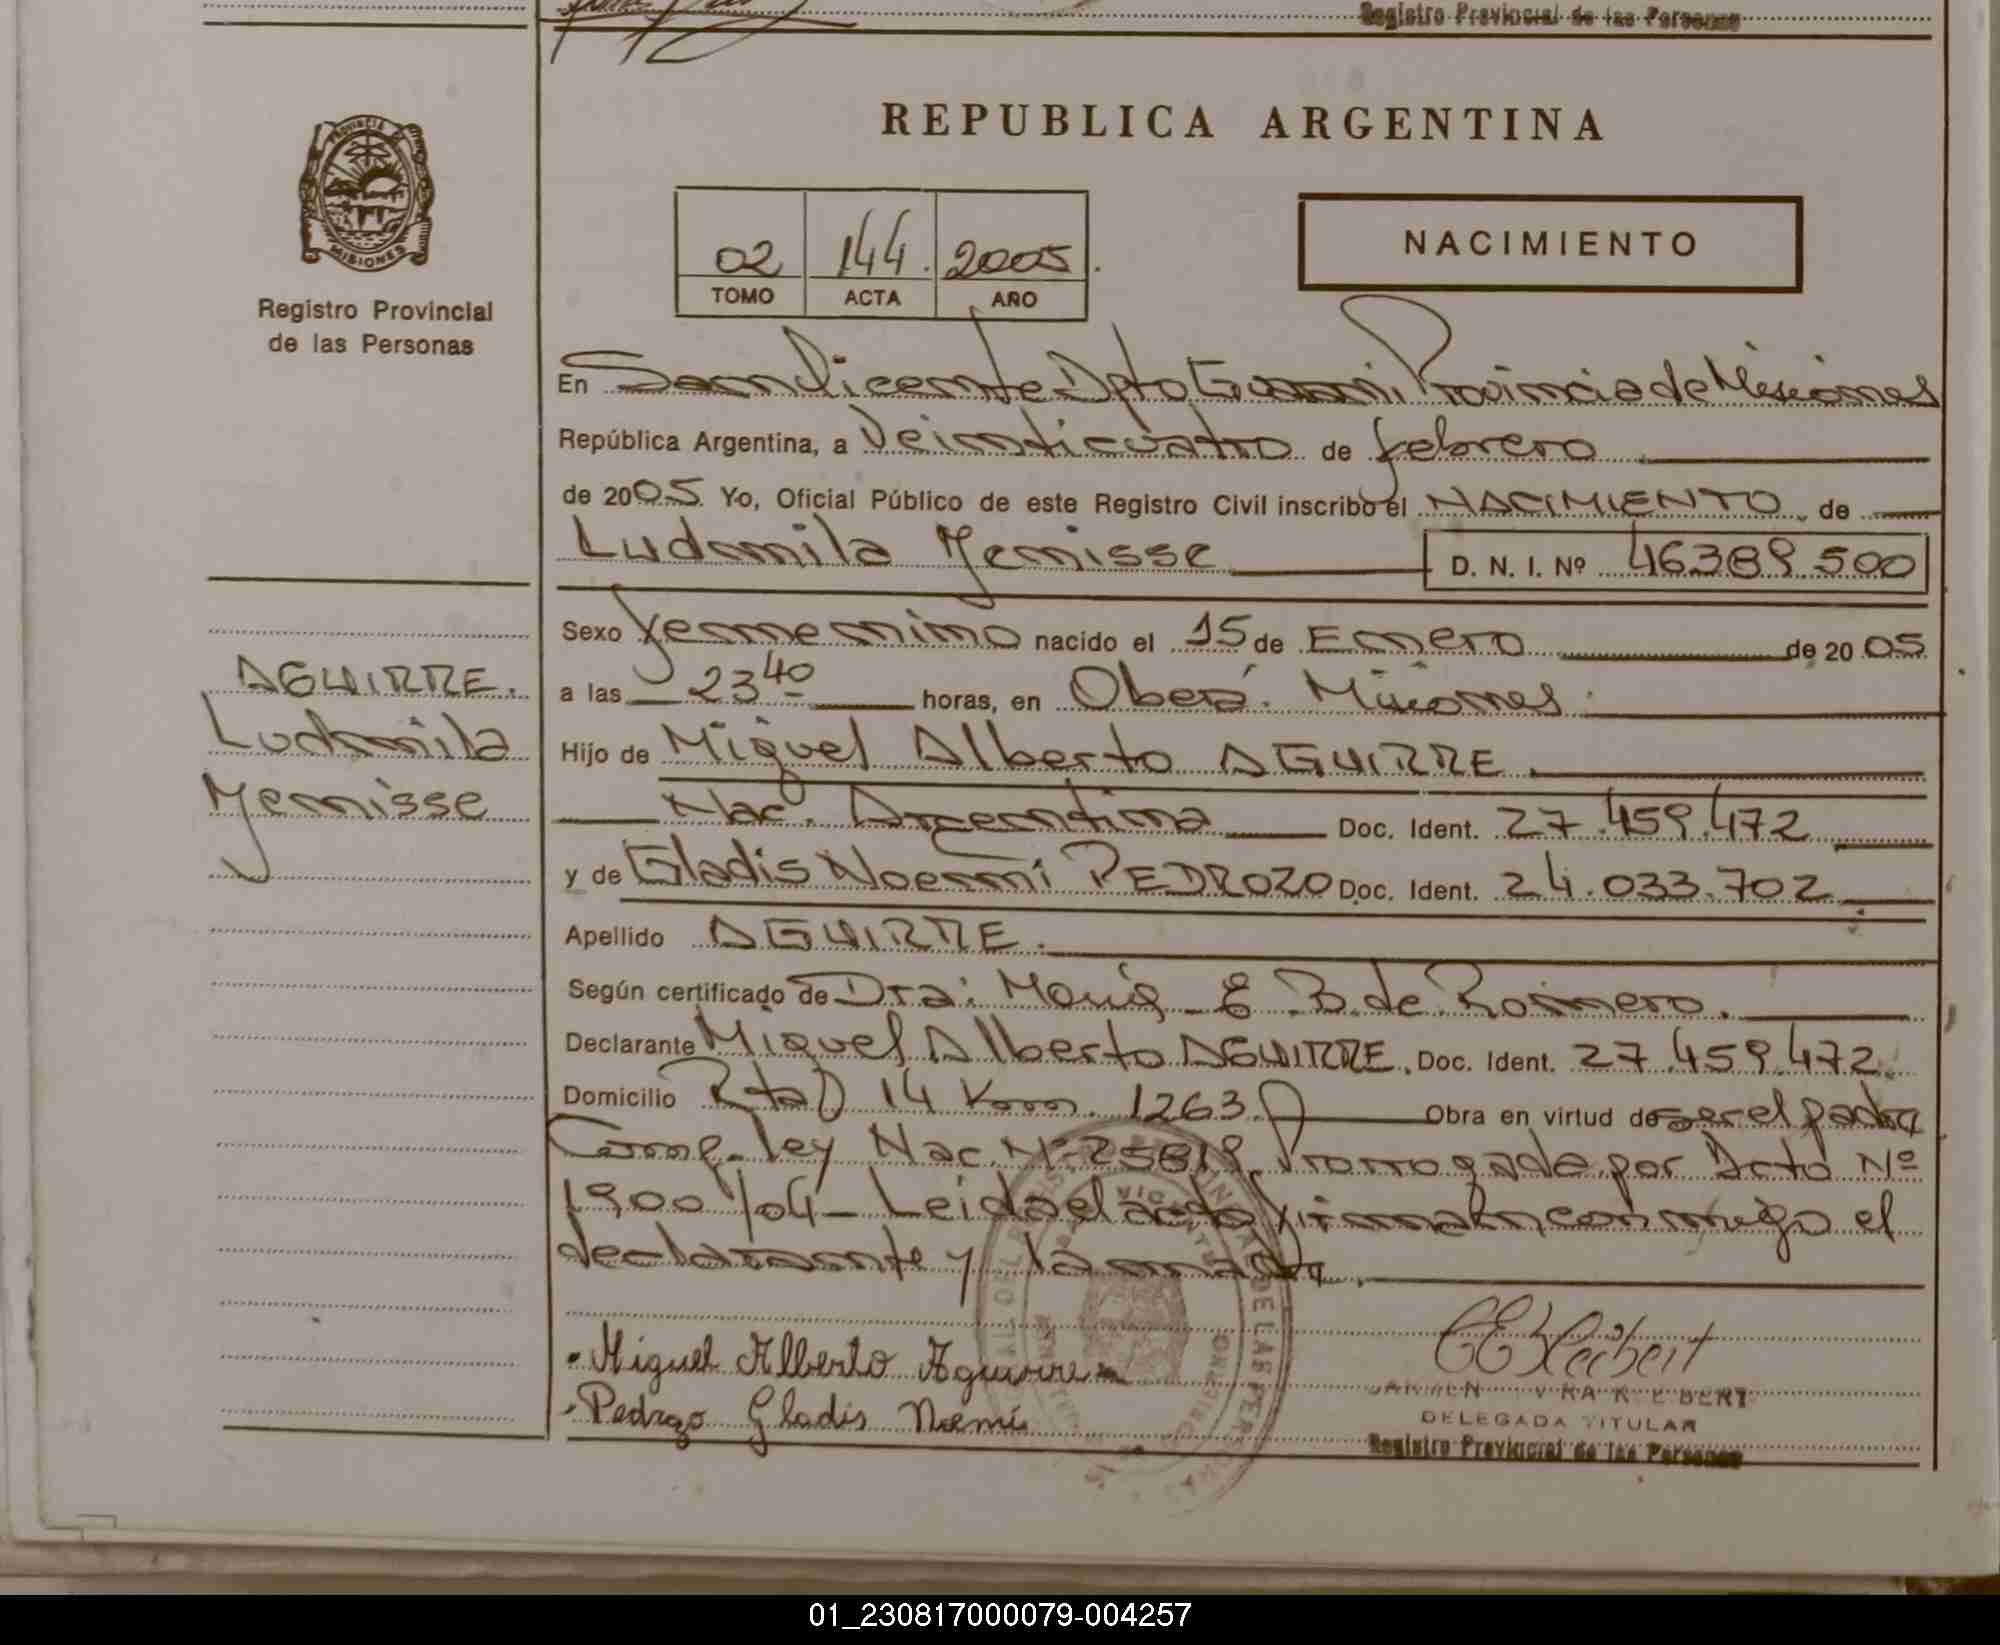 Registro Provincial de las Personas
REPUBLICA ARGENTINA
PROVINCIA
MISIONES
Registro Provincial
de las Personas
02 144. 2005.
TOMO ACTA AÑO
NACIMIENTO
En San Vicente Dpto Guarani, Provincia de Misiones
República Argentina, a Veinticuatro de febrero
de 2005 Yo, Oficial Público de este Registro Civil inscribo el NACIMIENTO de
Ludmila Yenisse D. N. I. Nº 46389500
Sexo femenino nacido el 15 de Enero de 2005
a las 23 40 horas, en Oberá. Misiones.
Hijo de Miguel Alberto AGUIRRE
Nac. Argentina Doc. Ident. 27.459.472
y de Gladis Noemi PEDROZO Doc. Ident. 24.033.702
Apellido AGUIRRE.
Según certificado de Dra: E B. de Romero.
Declarante Miguel Alberto AGUIRRE. Doc. Ident. 27.459.472.
Domicilio Rta 14 Km. 1263. Obra en virtud de ser el padre
Comp. ley Nac. Nº 25819 Prorrogada por Dcto Nº
1900/04 - Leida el acta firman conmigo el
declarante y la madre.
AGUIRRE.
Ludmila
Yenisse
Miguel Alberto Aguirre
Pedrozo Gladis Noemi
DELEGADA TITULAR
Registro Provincial de las Personas
01_230817000079-004257